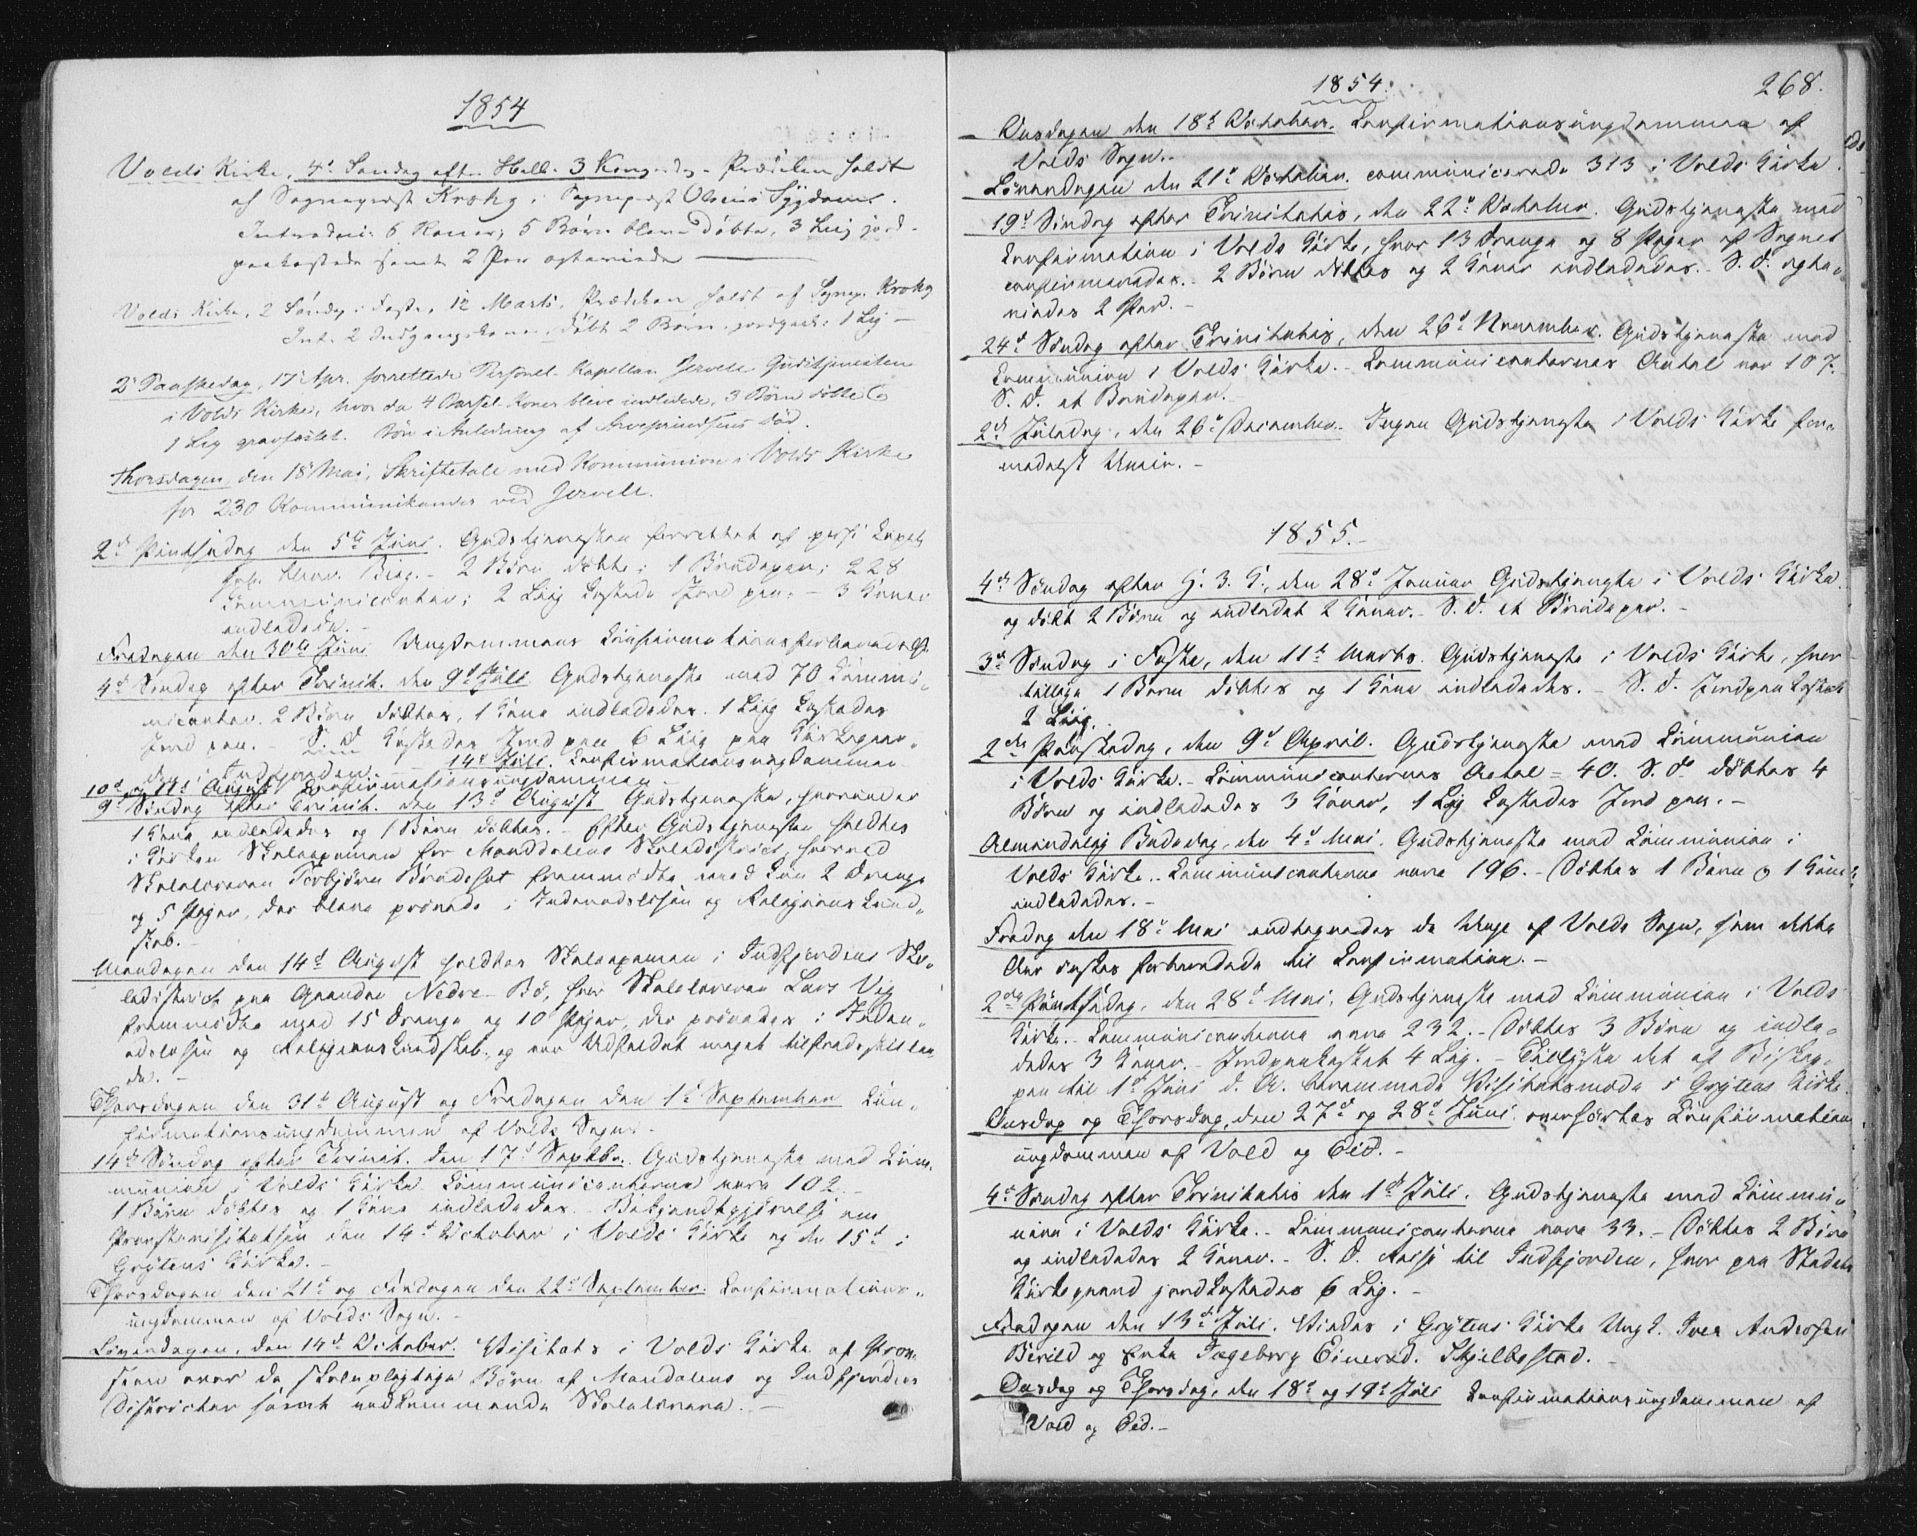 1854
Volds Kirke, 4de Søndag efter Hell. 3 Kong. Prædiken holdt
af Sogneprest Krohg, i Sognprest Olsens Sygdom.
Introd. 6 Koner, 5 Børn bleve døbte, 3 Liig jord-
paakastede samt 2 Par ægteviede
Volds Kirke, 2 Søndag i Faste, 12 Marts, Prædiken holdt af Sognep. Krohg
Int. 2 Indgangskoner, døbt 2 Børn, jordpaak. 1 Lig —
2d Paaskedag, 17 Apr. forrettede Personel Kapellan Jervell Gudstjenesten
i Volds Kirke, hvor da 4 Barsel-Koner bleve indledede, 3 Børn døbte &
1 Lig gravfæstet. Bøn i Anledning af Arveprindsens Død.
Thorsdagen, den 18 Mai, Skriftetale med Kommunion i Volds Kirke
for 230 Kommunikanter ved Jervell.
2d Pintsedag den 5te Juni. Gudstjenesten forrettet af pers. Capel
2 Børn døbte; 1 Brudepar; 228
Communicanter; 2 Liig kastede Jord paa. — 3 Koner
indledede. —
Fredagen den 30te Juni Ungdommens Confirmationsforberedelse.
4d Søndag efter Trinit. den 9d Juli. Gudstjeneste med 70 Commu-
nicanter. 2 Børn døbtes, 1 Kone indlededes. 1 Liig kastedes
Jord paa. — S. D. kastedes Jord paa 6 Liig paa Kirkegaar-
den i Indfjorden. — 14d Juli. Confirmationsungdommen
10d og 11d August Confirmationsungdommen —
9d Søndag efter Trinit. den 13d August Gudstjeneste, hvorunder
1 Kone indlededes og 1 Barn døbtes. — Efter Gudstjenesten holdtes
i Kirken Skoleexamen for Manddalens Skoledistrict, hvorved
Skolelæreren Torbjørn Brudeset fremmødte med kun 2 Drenge
og 5 Piger, der bleve prøvede i Indenadslæsen og Religionskund-
skab. —
Mandagen den 14d August holdtes Skoleexamen i Indfjordens Sko-
ledistrict paa Gaarden Nedre-Bø, hvor Skolelæreren Lars Vig
fremmødte med 15 Drenge og 10 Piger, der prøvedes i Inden-
adslæsen og Religionskundskab, og var Udfaldet meget tilfredsstillen-
de. —
Thorsdagen den 31d August og Fredagen den 1d September Con-
firmationsungdommen af Volds Sogn. —
14d Søndag efter Trinit. den 17d Septbr. Gudstjeneste med Com-
munion i Volds Kirke. Communicanterne vare 102. —
1 Barn døbtes og 1 Kone indlededes. Bekjendtgjørelse om
Provstevisitatsen den 14d October i Volds Kirke og den 15d i
Grytens Kirke. —
Thorsdagen den 21d og Fredagen den 22d September. Confirmations-
ungdommen af Volds Sogn. —
Løverdagen, den 14d October. Visitats i Volds Kirke af Prov-
sten over de skolepligtige Børn af Mandalens og Indfjordens
Districter samt vedkommende Skolelærere. —
1854. 268.
Onsdagen den 18d October. Confirmationsungdommen af
Volds Sogn. —
Løverdagen den 21d October. communicerede 313 i Volds Kirke.
19d Søndag efter Trinitatis, den 22d October. Gudstjeneste med
Confirmation i Volds Kirke, hvor 13 Drenge og 8 Piger af Sognet
confirmeredes. — 2 Børn døbtes og 2 Koner indlededes. — S. D. egte-
viedes 2 Par. —
24d Søndag efter Trinitatis, den 26d November. Gudstjeneste med
Communion i Volds Kirke. — Communicanternes Antal var 107.
S. D. et Brudepar. —
2d Juledag, den 26d December. Ingen Gudstjeneste i Volds Kirke for-
medelst Uveir. —
1855. —
4d Søndag efter H. 3. K., den 28d Januar Gudstjeneste i Volds Kirke.
og døbt 2 Børn og indledet 2 Koner. — S. D. et Brudepar. —
3d Søndag i Faste, den 11d Marts. Gudstjeneste i Volds Kirke, hvor
tillige 1 Barn døbtes og 1 Kone indlededes. — S. D. Jordpaakastet
2 Liig.
2den Paaskedag, den 9d April. Gudstjeneste med Communion
i Volds Kirke. — Communicanternes Antal = 40. S. D. døbtes 4
Børn og indlededes 3 Koner, 1 Lig kastedes Jord paa. —
Almindelig Bededag, den 4d Mai. Gudstjeneste med Communion i
Volds Kirke. Communicanterne vare 196. — Døbtes 1 Barn og 1 Kone
indlededes. —
Fredag den 18d Mai antegnedes de Unge af Volds Sogn, som dette
Aar ønskes forberedede til Confirmation. —
2den Pintsedag, den 28d Mai, Gudstjeneste med Communion i Volds
Kirke. Communicanterne vare 232. — Døbtes 3 Børn og indle-
dedes 3 Koner. — Jordpaakastet 4 Lig. — Tillyste det af Biskop-
pen til 1d Juni d. A. berammede Visitatsmøde i Grytens Kirke.
Onsdag og Thorsdag, den 27d og 28d Juni. overhørtes Confirmations
ungdommen af Vold og Eid. —
4d Søndag efter Trinitatis den 1d Juli. Gudstjeneste med Commu-
nion i Volds Kirke. — Communicanterne vare 33. — Døbtes 2 Børn
og indlededes 2 Koner. — S. D. Reise til Indfjorden, hvor paa Stedets
Kirkegaard jordkastedes 6 Lig. —
Fredagen den 13d Juli. Viedes i Grytens Kirke Ungk. Iver Andersen
Birild og Enke Ingeborg Einersd. Skjelbostad.
Onsdag og Thorsdag, den 18d og 19d Juli Confirmationsungdommen af
Vold og Eid. —